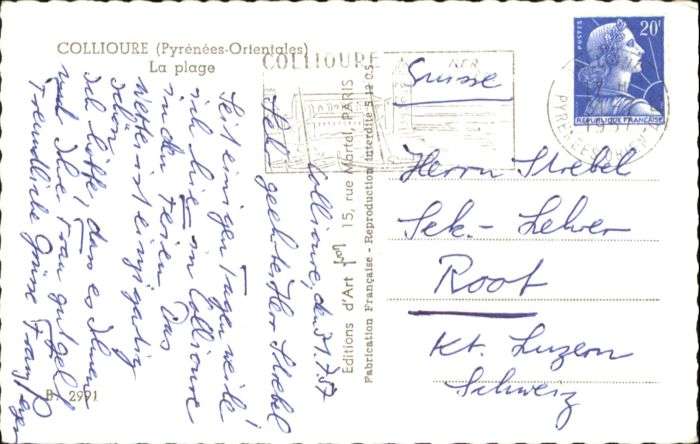 COLLIOURE (Pyrénées-Orientales)
La plage
COLLIOURE
20F
POSTES
REPUBLIQUE FRANÇAISE
Suisse
Herrn Strebel
Sek.- Lehrer
Root
Kt. Luzern
Schweiz
Editions d'Art 15, rue Martel, PARIS
Fabrication Française - Reproduction Interdite
Collioure, den 31.7.57
Sehr geehrter Herr Strebel
Seit einigen Tagen weile
ich hier in Collioure
in den Ferien. Das
Wetter ist einzigartig
schön.
Ich hoffe, dass es Ihnen
und Ihrer Frau gut geht
Freundliche Grüsse
B 2991